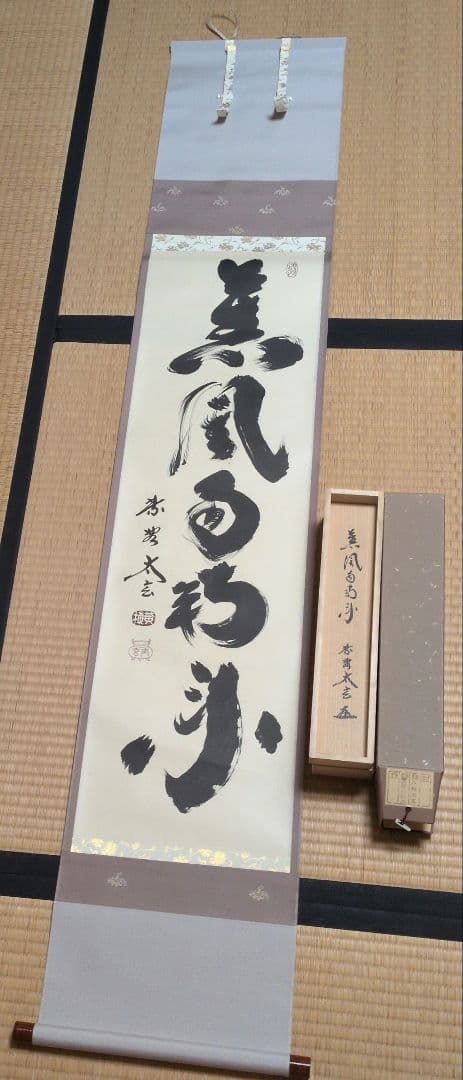 薫風自南来
紫野 太玄
薫風自南来
紫野 太玄